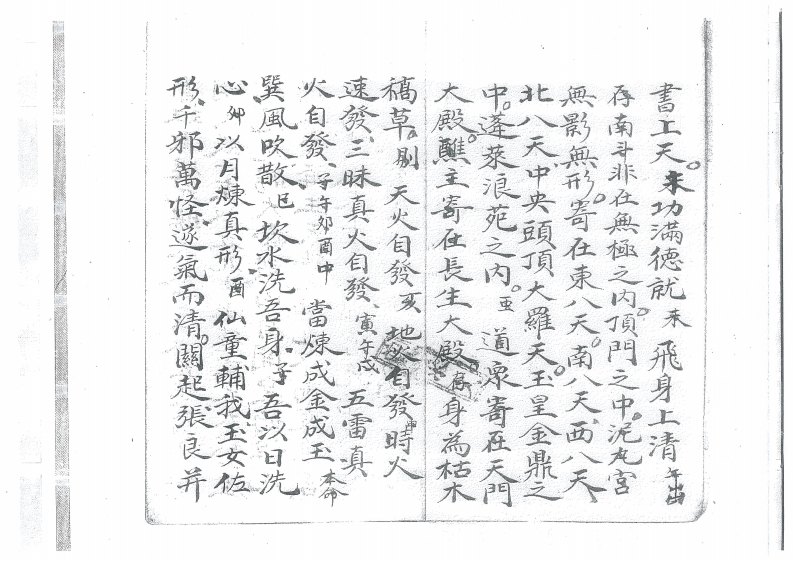 書上天。未功滿德就未飛身上清午出
存南斗非在無極之內。頂門之中。泥丸宮
無影無形。寄在東八天。南八天、西八天、
北八天中央頭頂大羅天。玉皇金鼎之
中。蓬萊浪苑之內。亚道眾寄在天門
大殿。醮主寄在長生大殿。存身為枯木
稿草。剛天火自發亥地火自發申時火
速發、三昧真火自發、寅午戌五雷真
火自發、子午卯酉中當煉成金成玉、本命
巽風吹散、巳坎水洗吾身、子吾以日洗
心卯以月煉真形、酉仙童輔我、玉女佐
形、千邪萬怪、逐氣而清。關起張良并